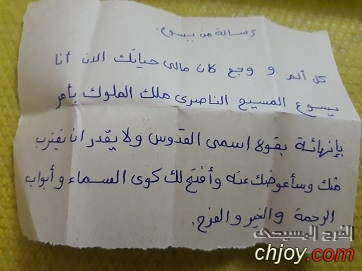 رسالة من يسوع
كل ألم و وجع كان مالى حياتك الان أنا
يسوع المسيح الناصرى ملك الملوك يأمر
بإنهائة بقوة اسمى القدوس ولا يقدر ان يقترب
منك وسأعوضك عنه وأفتح لك كوى السماء وأبواب
الرحمة والخير والفرح.
الفرح المسيحى
chjoy.com